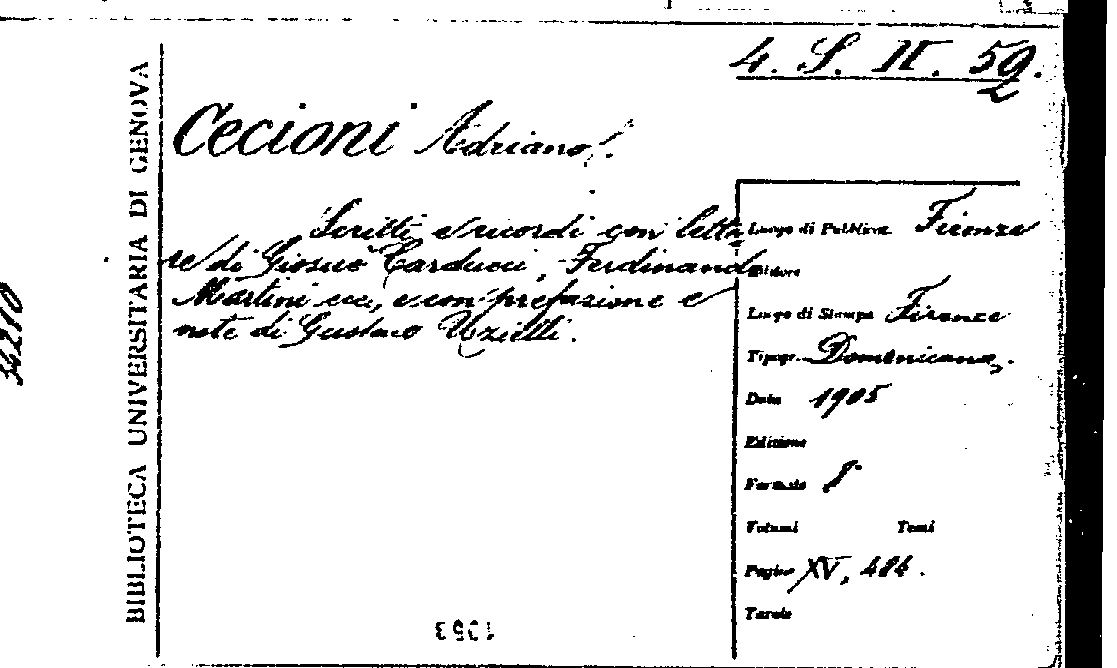 4. S. II. 59.
2
Cecioni Adriano.
Scritti e ricordi con lette
re di Giosue Carducci, Ferdinando
Martini ecc, e con prefazione e
note di Gustavo Uzielli.
Luogo di Pubblica Firenze
Editore
Luogo di Stampa Firenze
Tipogr. Domenicana.
Data 1905
Edizione
Formato 8°
Volumi Tomi
Pagine XV, 484.
Tavole
BIBLIOTECA UNIVERSITARIA DI GENOVA
34210